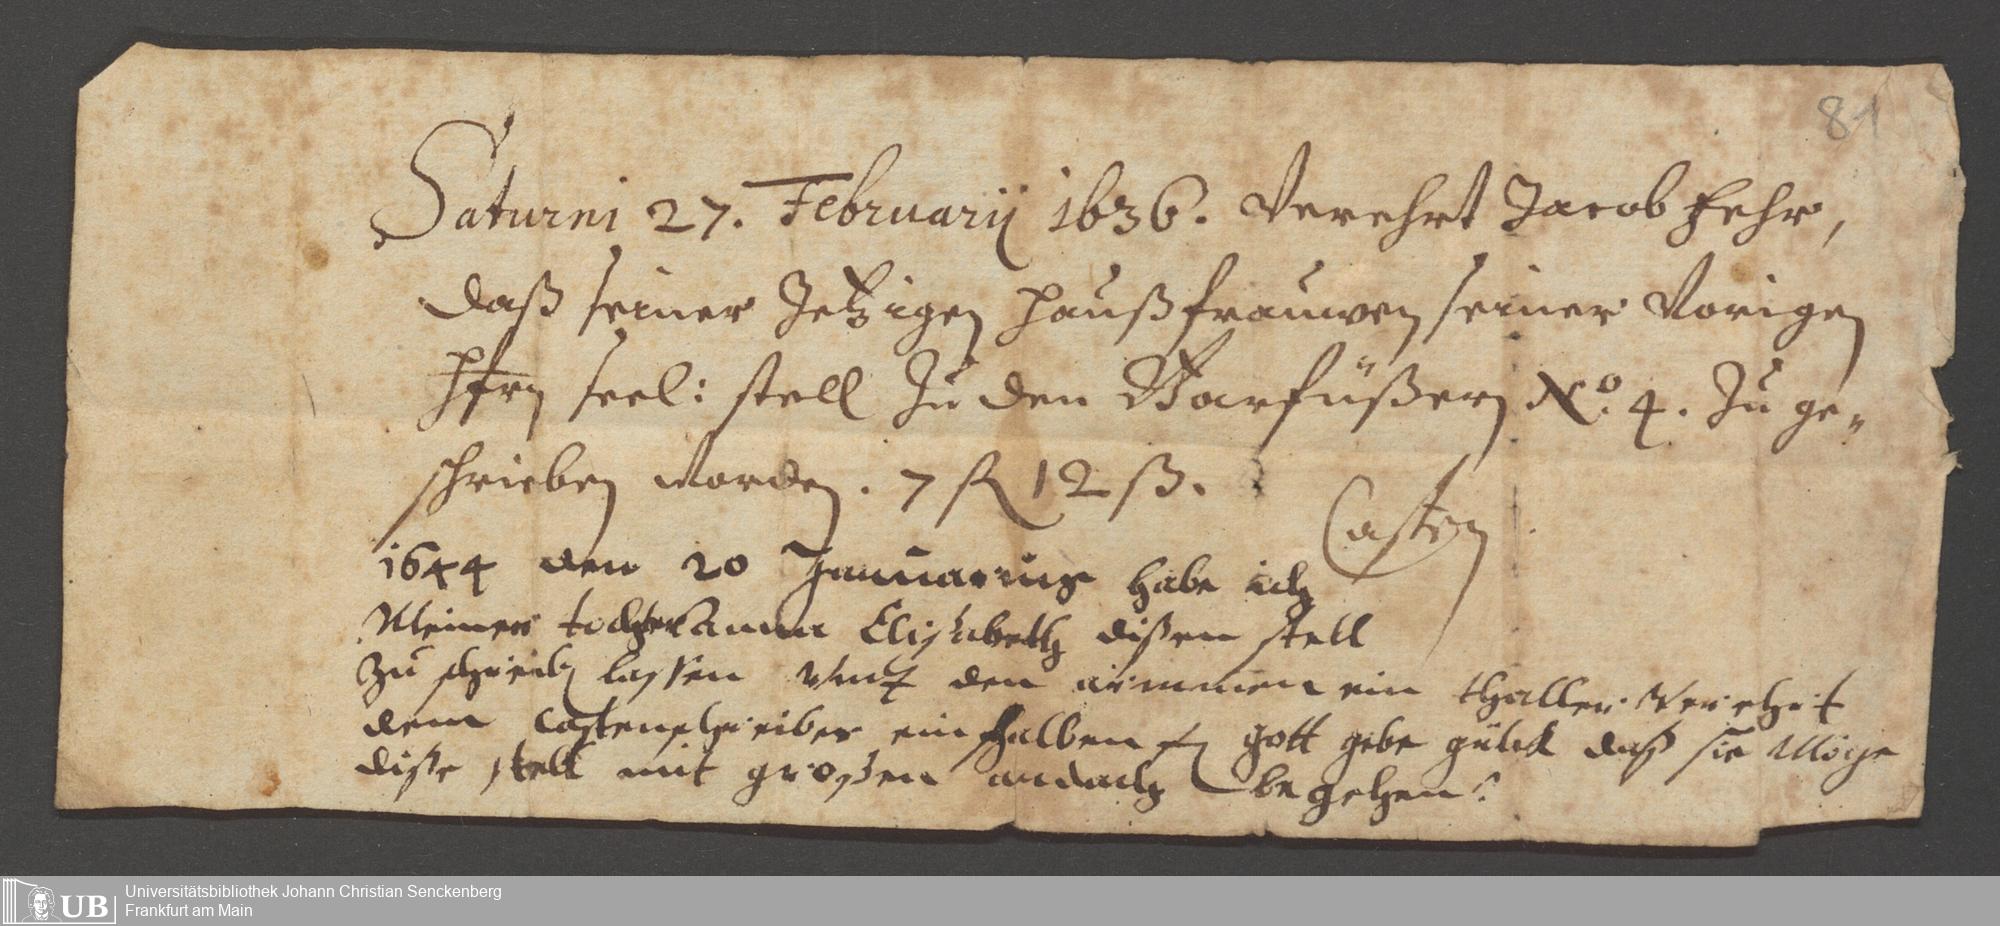 81
Saturni 27. Februarij 1636. Verehrt Jacob Fehr,
daß seiner Jetzigen haußfrauwen seiner Vorigen
hfrn seel: stell Zu den Barfüßern No. 4. Zu ge-
schrieben worden. 7 fl 12 ß.
Casten
1644 den 20 Januarius habe ich
Meiner tochter Anna Elisabeth dißen stell
Zu schreib lassen Vnd den armmen ein thaller Verehrt
dem Castenschreiber ein halben fl gott gebe gülck daß sie Möge
diße stell mit großen andach begehen
UB
Universitätsbibliothek Johann Christian Senckenberg
Frankfurt am Main